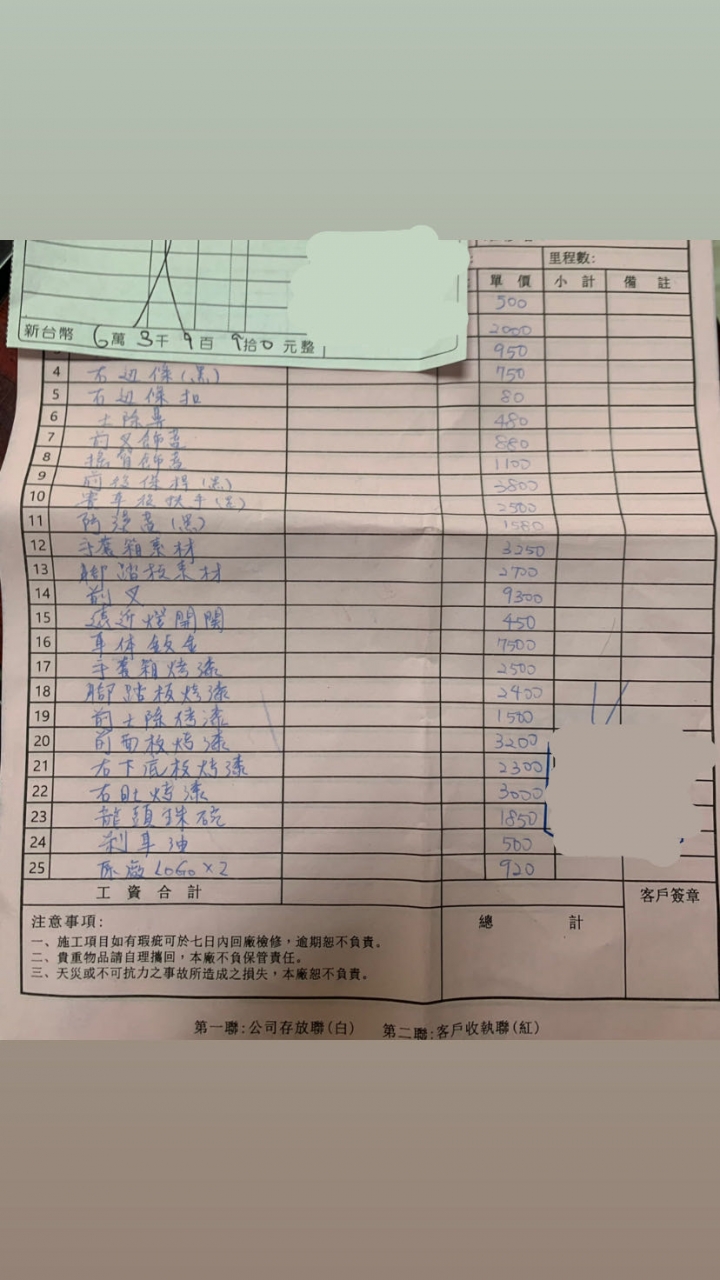 里程數:
單價 小計 備註
500
2000
新台幣 6萬3千9百9拾0元整
950
4 右边條(黑) 750
5 右边條扣 80
6 土除鼻 480
7 前叉飾蓋 880
8 飾蓋 1100
9 前 保桿(黑) 3800
10 後扶手(黑) 2500
11 蓋(黑) 1580
12 手套箱素材 3250
13 腳踏板素材 2700
14 前叉 9300
15 遠近燈開關 450
16 車体鈑金 7500
17 手套箱烤漆 2500
18 腳踏板烤漆 2400
19 前土除烤漆 1500
20 前面板烤漆 3200
21 右下底板烤漆 2300
22 右肚烤漆 3000
23 龍頭珠碗 1850
24 剎車油 500
25 原廠LOGO×2 920
工資合計
客戶簽章
注意事項:
總計
一、施工項目如有瑕疵可於七日內回廠檢修,逾期恕不負責。
二、貴重物品請自理攜回,本廠不負保管責任。
三、天災或不可抗力之事故所造成之損失,本廠恕不負責。
第一聯:公司存放聯(白) 第二聯:客戶收執聯(紅)